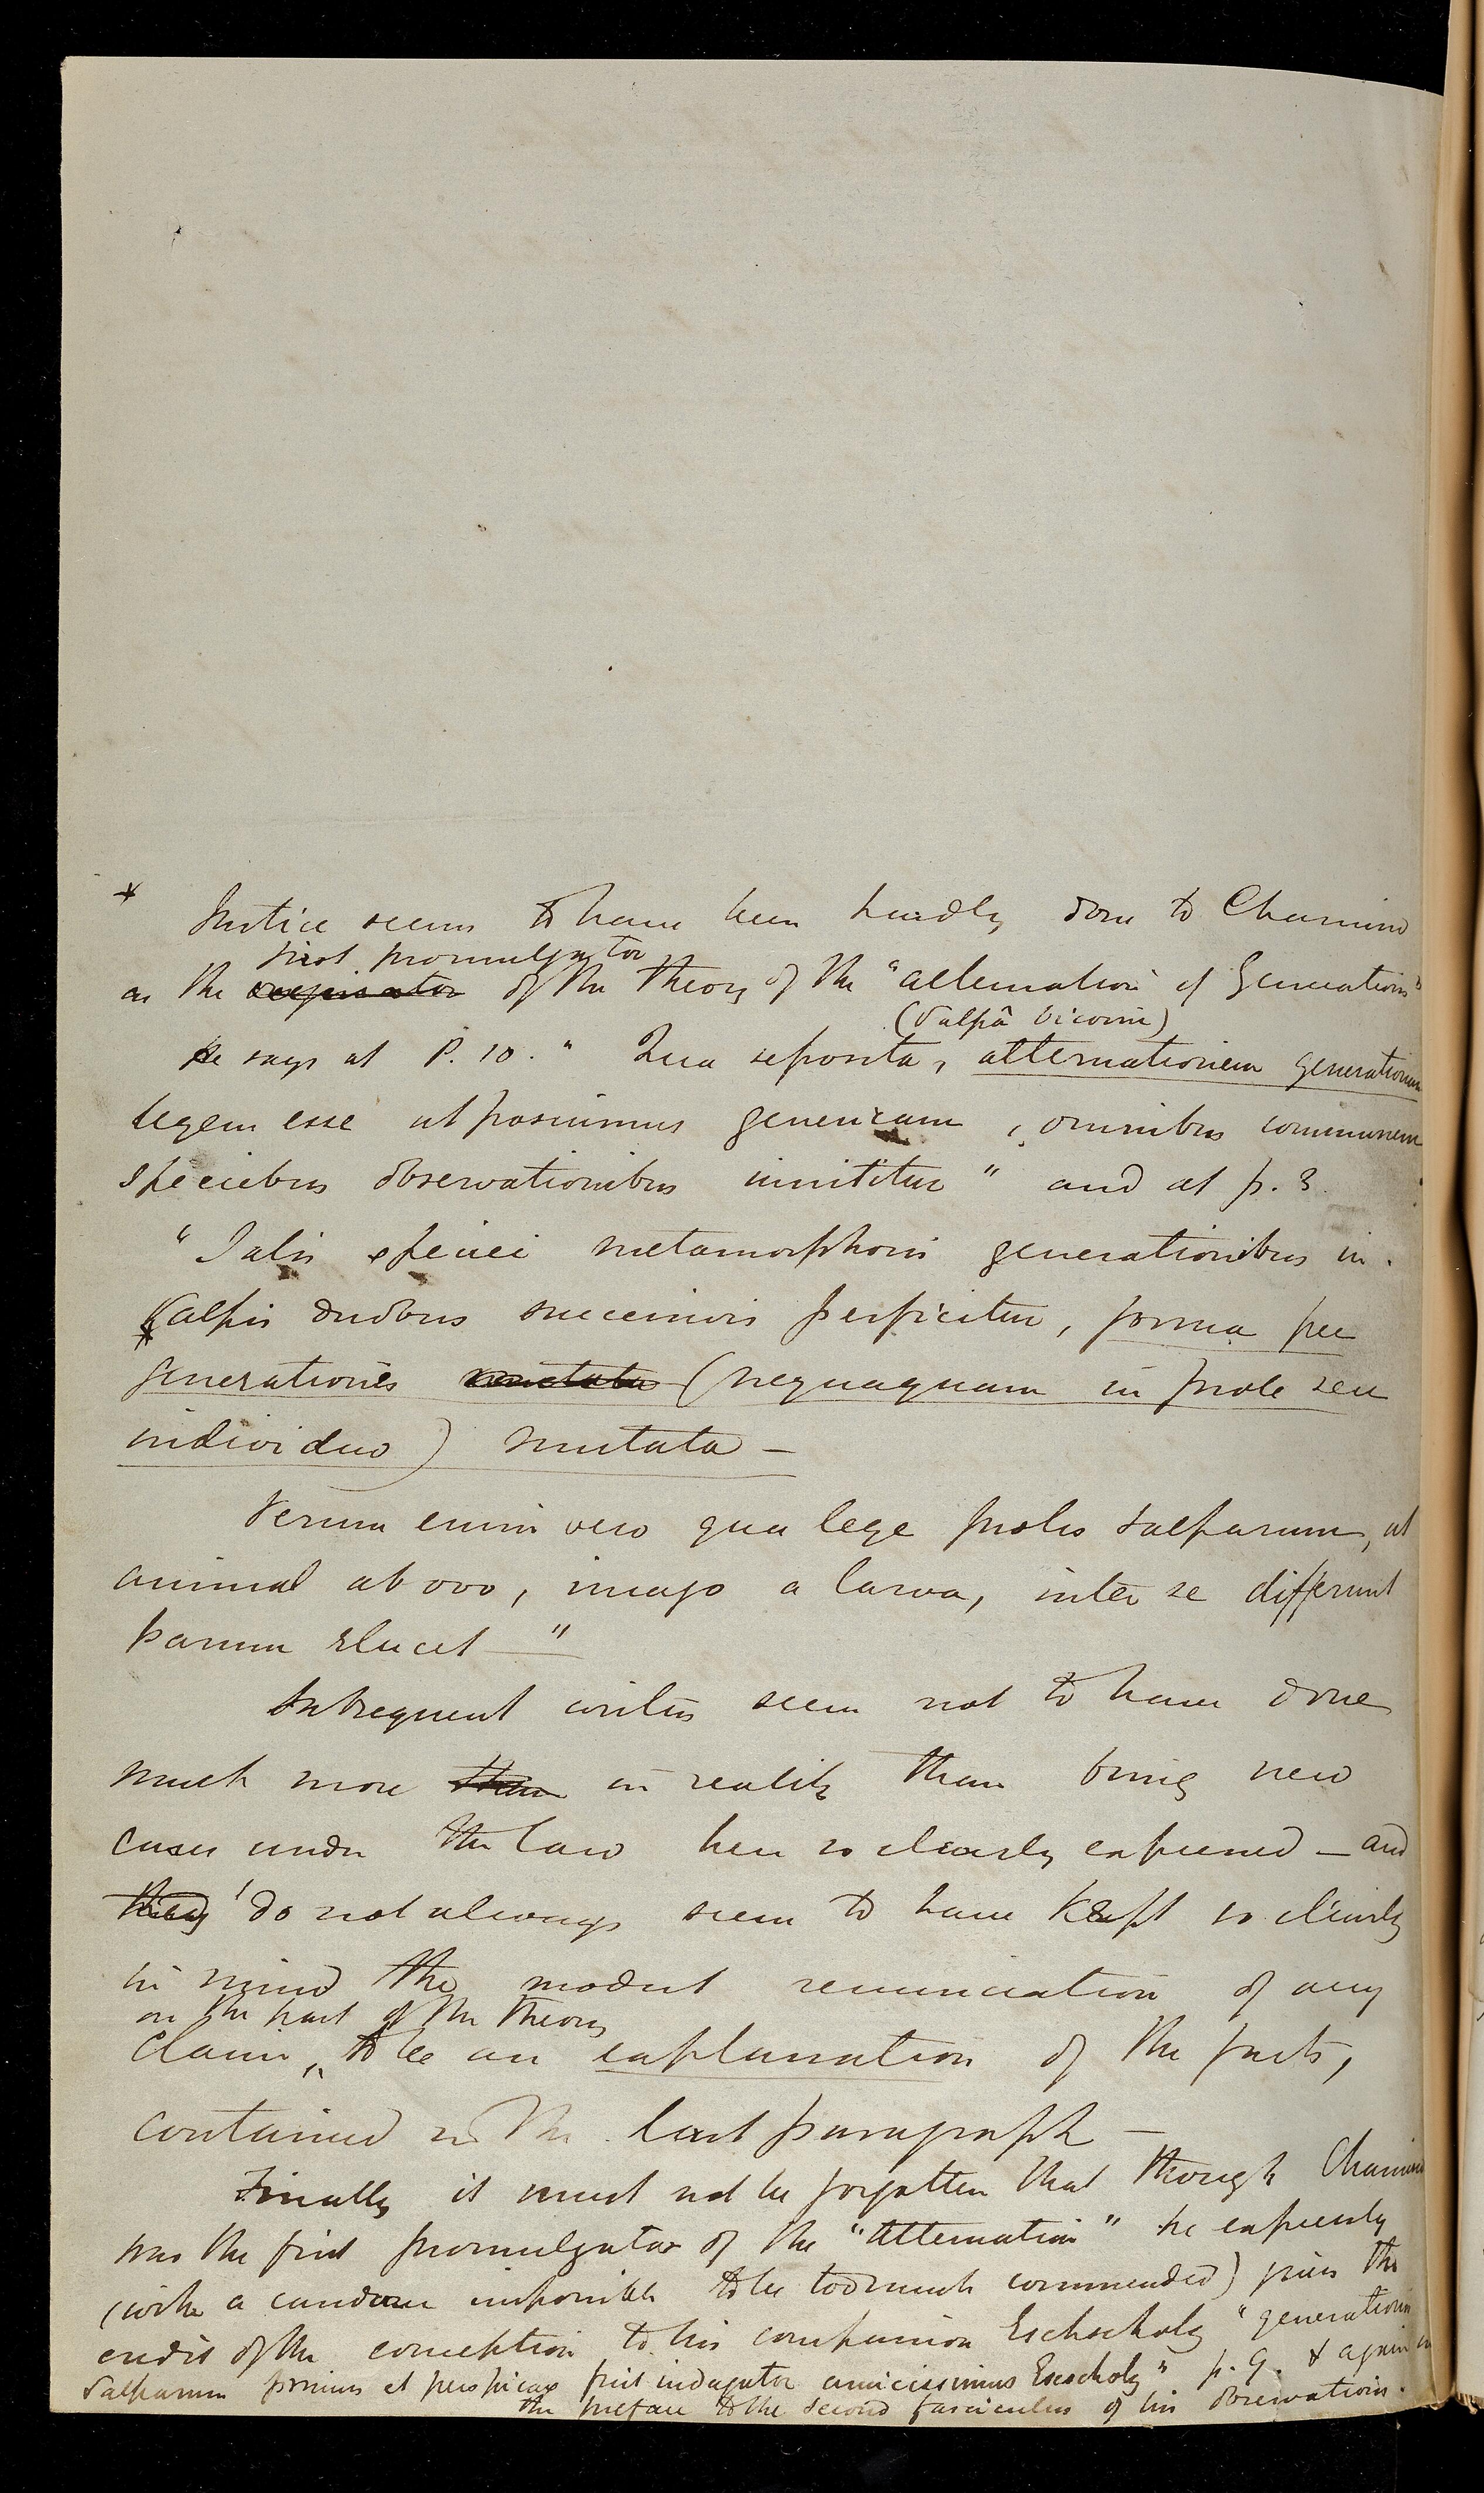 * Justice seems to have been hardly done to Chamisso
first promulgator
as the of the theory of the "alternation of Generations"
(Salpâ bicorni)
He says at P. 10. " Qua seposita, alternationem generationum
legem esse ut posuimus genericam, omnibus communem
speciebus observationibus innititur " and at p. 3.
" Talis speciei metamorphosis generationibus in
Salpis duobus successivis perficitur, forma per
generationes mutata (nequaquam in prole seu
individuo) mutata –
Verum enim vero qua lege proles Salparum, ut
animal ab ovo, imago a larva, inter se differunt
parum elucet — "
Subsequent writers seem not to have done
much more than in reality than bring new
cases under the law here so clearly expressed – and
they do not always seem to have kept so clearly
in mind the modest renunciation of any
on the part of the theory
claim, to be an explanation of the facts,
contained in the last paragraph —
Finally it must not be forgotten that though Chamisso
was the first promulgator of the "Alternation" he expressly
(with a candour impossible to be too much commended) gives the
credit of the conception to his companion Eschscholz "generationis
Salparum primus et perspicax fuit indagator amicissimus Eschscholz" p. 9. & again in
the preface to the second fasciculus of his observations.